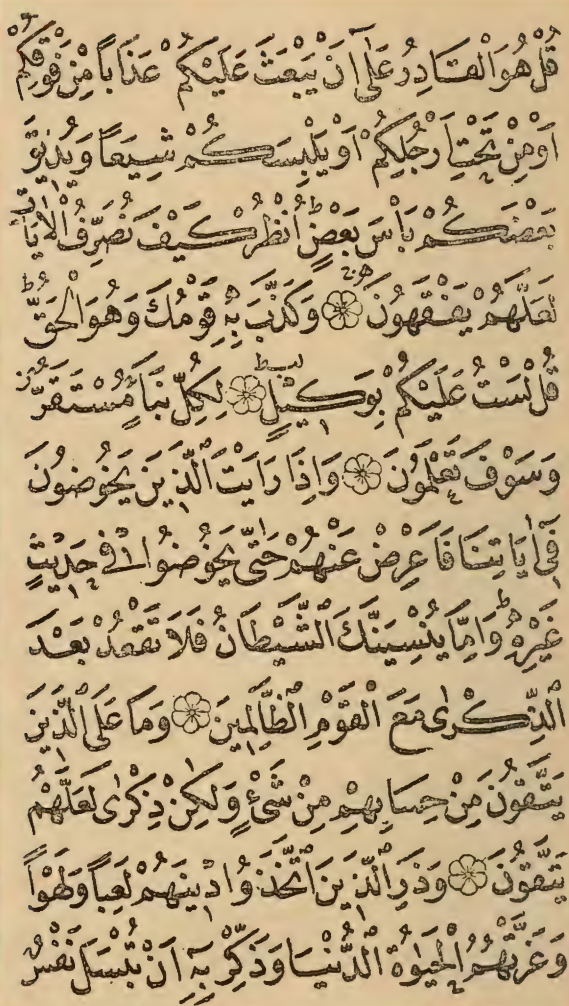 قُلْ هُوَ الْقَادِرُ عَلَىٰ اَنْ يَبْعَثَ عَلَيْكُمْ عَذَابًا مِنْ فَوْقِكُمْ
اَوْ مِنْ تَحْتِ اَرْجُلِكُمْ اَوْ يَلْبِسَكُمْ شِيَعًا وَيُذِيقَ
بَعْضَكُمْ بَاْسَ بَعْضٍ ط اُنْظُرْ كَيْفَ نُصَرِّفُ الْاٰيَاتِ
لَعَلَّهُمْ يَفْقَهُونَ ۝ وَكَذَّبَ بِهِ قَوْمُكَ وَهُوَ الْحَقُّ ط
قُلْ لَسْتُ عَلَيْكُمْ بِوَكِيلٍ ط ۝ لِكُلِّ نَبَاٍ مُسْتَقَرٌّ ز
وَسَوْفَ تَعْلَمُونَ ۝ وَاِذَا رَاَيْتَ الَّذِينَ يَخُوضُونَ
فِٓي اٰيَاتِنَا فَاَعْرِضْ عَنْهُمْ حَتّٰى يَخُوضُوا فِي حَدِيثٍ
غَيْرِهِ ط وَاِمَّا يُنْسِيَنَّكَ الشَّيْطَانُ فَلَا تَقْعُدْ بَعْدَ
الذِّكْرٰى مَعَ الْقَوْمِ الظَّالِمِينَ ۝ وَمَا عَلَى الَّذِينَ
يَتَّقُونَ مِنْ حِسَابِهِمْ مِنْ شَيْءٍ وَلٰكِنْ ذِكْرٰى لَعَلَّهُمْ
يَتَّقُونَ ۝ وَذَرِ الَّذِينَ اتَّخَذُوا دِينَهُمْ لَعِبًا وَلَهْوًا
وَغَرَّتْهُمُ الْحَيٰوةُ الدُّنْيَا وَذَكِّرْ بِهِٓ اَنْ تُبْسَلَ نَفْسٌ